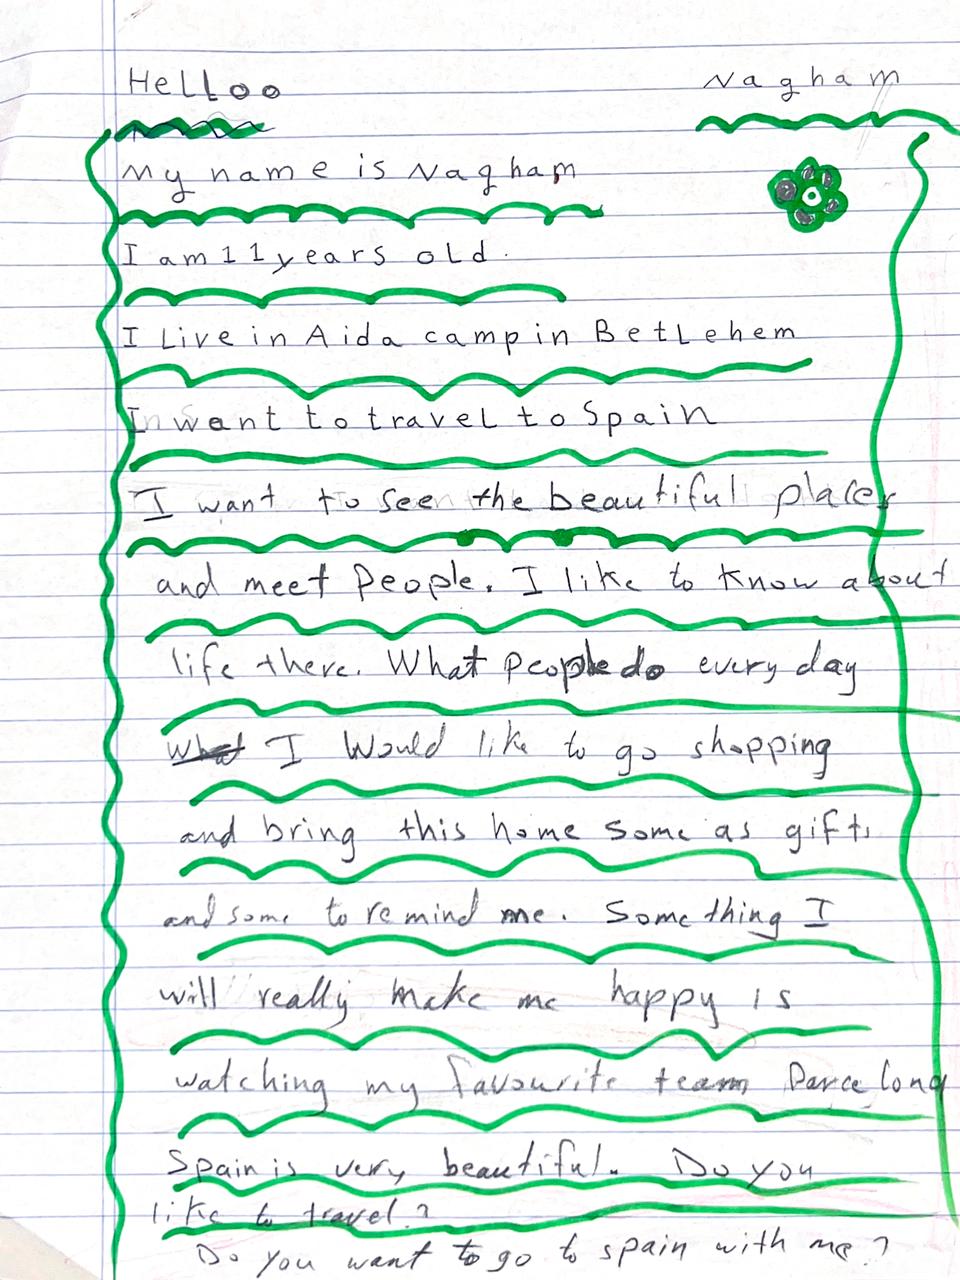 Helloo
Nagham
My name is Nagham
I am 11 years old.
I Live in Aida camp in BetLehem
I want to travel to Spain
I want to seen the beautiful places
and meet People. I like to know about
life there. What people do every day
What I Would like to go shopping
and bring this home some as gifts
and some to remind me. Something I
will really make me happy is
watching my favourite team Barcelona
Spain is very beautiful. Do you
like to travel?
Do you want to go to spain with me?